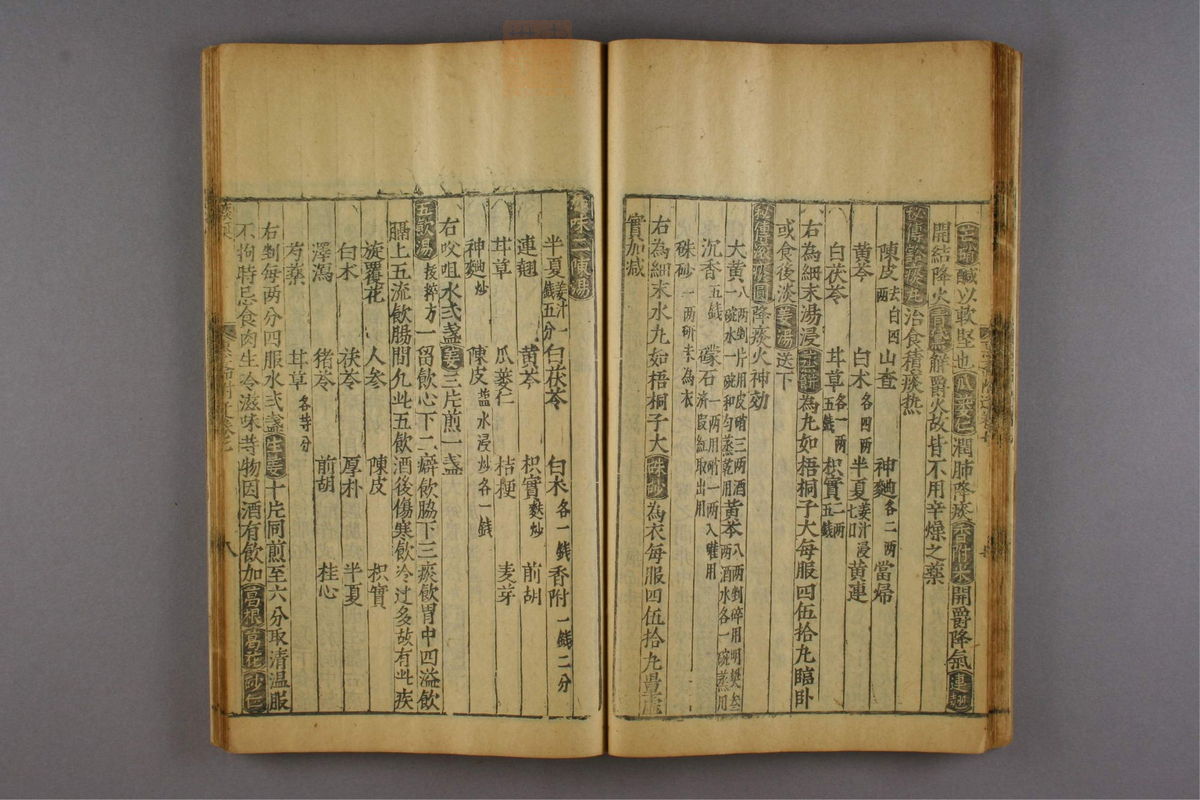 鹹以軟堅也瓜蔞仁潤肺降痰香附米開爵降氣連翹
開結降火青黛解爵火故皆不用辛燥之藥
秘傳 痰丸治食積痰热
陳皮去白四兩 山查 神麯各二兩 當帰
黄芩 白术各四兩 半夏姜汁浸七日 黄連
白茯苓 甘草各一兩五錢 枳實二兩五錢
右為細末湯浸蒸餅為丸如梧桐子大每服四伍拾丸臨卧
或食後淡姜湯送下
秘傳 痰圓降痰火神効
大黄八兩剉片用皮硝三兩酒一碗水一碗和匀蒸乾用 黄芩八兩剉碎用明礬 兩酒水各一碗蒸用
沉香五錢 礞石一兩用硝一兩入確用 濟 紅取出用
硃砂一兩研末為衣
右為細末水丸如梧桐子大硃砂為衣每服四伍拾丸量虛
實加减
味二陳湯
半夏姜汁一錢五分 白茯苓 白术各一錢 香附一錢二分
連翹 黄芩 枳實麩炒 前胡
甘草 瓜蔞仁 桔梗 麦芽
神麯炒 陳皮盐水浸炒各一錢
右㕮咀水弍盞姜三片煎一盞
五飲湯 按粹方一留飲心下二癖飲脇下三痰飲胃中四溢飲
膈上五流飲腸間凢此五飲酒後傷寒飲冷过多故有此疾
旋覆花 人參 陳皮 枳實
白术 茯苓 厚朴 半夏
澤瀉 猪苓 前胡 桂心
芍藥 甘草各等分
右剉每两分四服水弍盞生姜十片同煎至六分取清温服
不拘時忌食肉生冷滋味等物因酒有飲加葛根葛花砂仁
八